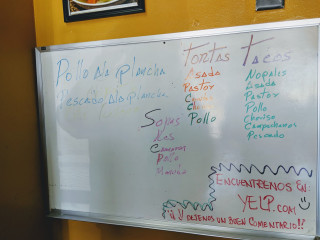 Pollo Ala Plancha
Pescado Ala Plancha
Sopas
Res
Camarones
Pollo
Tortas
Asada
Pastor
Pollo
Tacos
Nopalis
Asada
Pastor
Pollo
Chorizo
Campechanos
Pescado
ENCUENTRENOS EN
YELP.COM
Y DEJENOS UN BUEN COMENTARIO!!